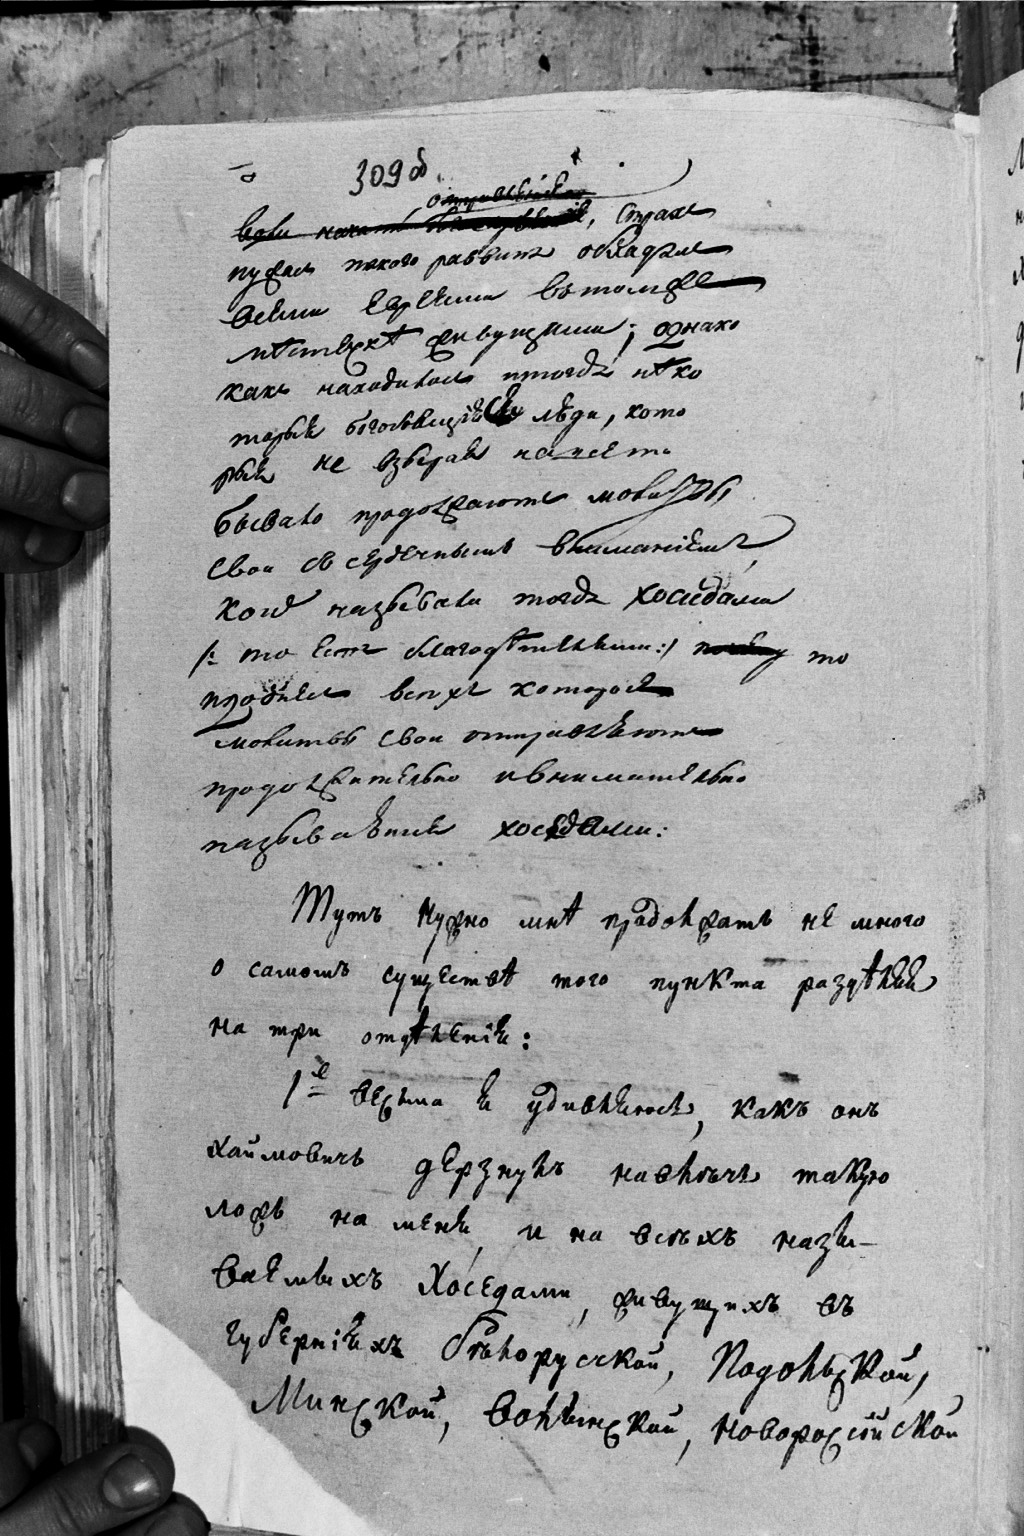 309 об
вали начали отправлять, страхъ
пужаль такого раввинъ обладалъ
всеми евреями въ томъ же
мѣстечкѣ живущими; однако
какъ находились тогда нѣко
торые боголюбящіе люди, кото
рые не взирая на
бывало продолжаютъ молитвы
свои съ сердечнымъ вниманіемъ,
коих называли тогда хоседами
/: то естъ благодѣтельными:/ то
протчие всехъ которые
молитвы свои отправляютъ
продолжительно и внимательно
называемые хоседами:
Тутъ нужно мнѣ продолжать не много
о самомъ существѣ того пункта раздѣляя
на три отдѣленіи:
1е весьма я удивляюсь, какъ онъ
Хаймовичъ дерзнулъ навлечь такую
ложь на меня, и на всѣхъ назы-
ваемыхъ Хоседами, живущихъ въ
губерніяхъ бѣлоруской, Подольской,
Минской, Волынской, Новоросійской